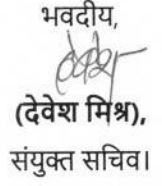 भवदीय,
(देवेश मिश्र),
संयुक्त सचिव।